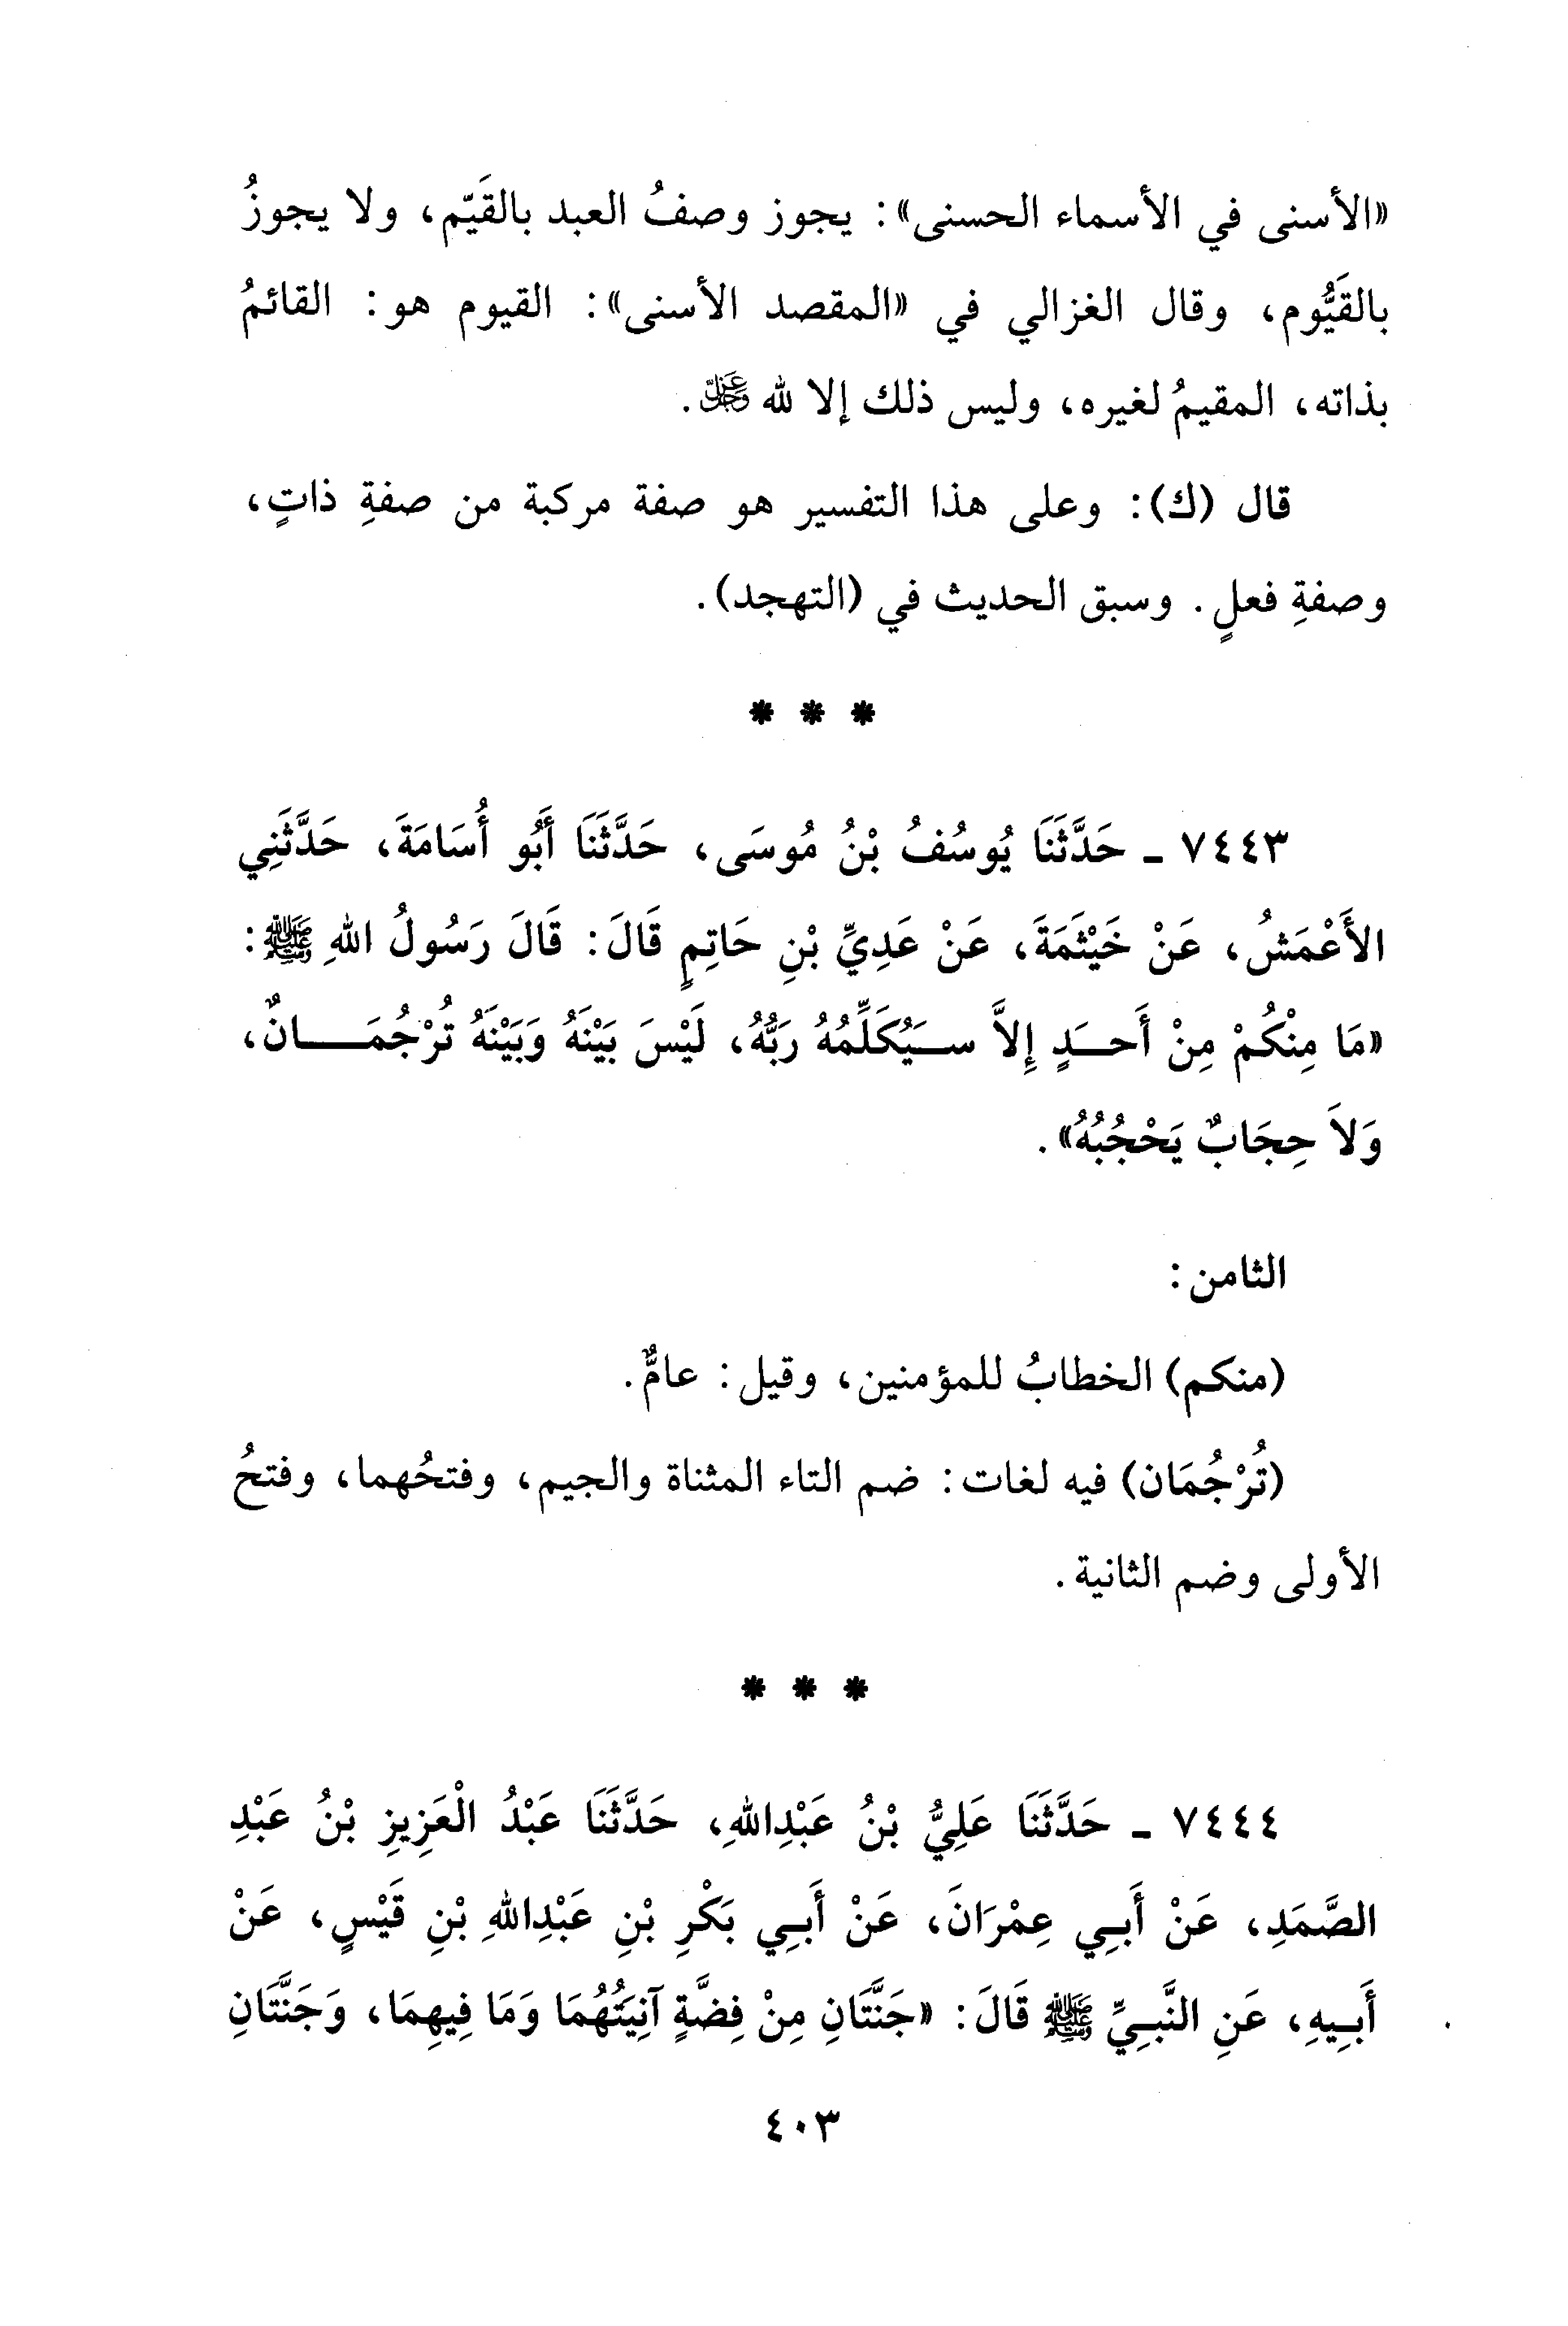 «الأسنى في الأسماء الحسنى»: يجوز وصفُ العبد بالقَيّم، ولا يجوزُ
بالقَيُّوم، وقال الغزالي في «المقصد الأسنى»: القيوم هو: القائمُ
بذاته، المقيمُ لغيره، وليس ذلك إلا لله عَزَّ وَجَلَّ.
قال (ك): وعلى هذا التفسير هو صفة مركبة من صفةِ ذاتٍ،
وصفةِ فعلٍ. وسبق الحديث في (التهجد).
* * *
٧٤٤٣ - حَدَّثَنَا يُوسُفُ بْنُ مُوسَى، حَدَّثَنَا أَبُو أُسَامَةَ، حَدَّثَنِي
الأَعْمَشُ، عَنْ خَيْثَمَةَ، عَنْ عَدِيِّ بْنِ حَاتِمٍ قَالَ: قَالَ رَسُولُ اللهِ ﷺ:
«مَا مِنْكُمْ مِنْ أَحَدٍ إِلاَّ سَيُكَلِّمُهُ رَبُّهُ، لَيْسَ بَيْنَهُ وَبَيْنَهُ تُرْجُمَانٌ،
وَلاَ حِجَابٌ يَحْجُبُهُ».
الثامن:
(منكم) الخطابُ للمؤمنين، وقيل: عامٌّ.
(تُرْجُمَان) فيه لغات: ضم التاء المثناة والجيم، وفتحُهما، وفتحُ
الأولى وضم الثانية.
* * *
٧٤٤٤ - حَدَّثَنَا عَلِيُّ بْنُ عَبْدِاللهِ، حَدَّثَنَا عَبْدُ الْعَزِيزِ بْنُ عَبْدِ
الصَّمَدِ، عَنْ أَبِي عِمْرَانَ، عَنْ أَبِي بَكْرِ بْنِ عَبْدِاللهِ بْنِ قَيْسٍ، عَنْ
أَبِيهِ، عَنِ النَّبِيِّ ﷺ قَالَ: «جَنَّتَانِ مِنْ فِضَّةٍ آنِيَتُهُمَا وَمَا فِيهِمَا، وَجَنَّتَانِ
٤٠٣